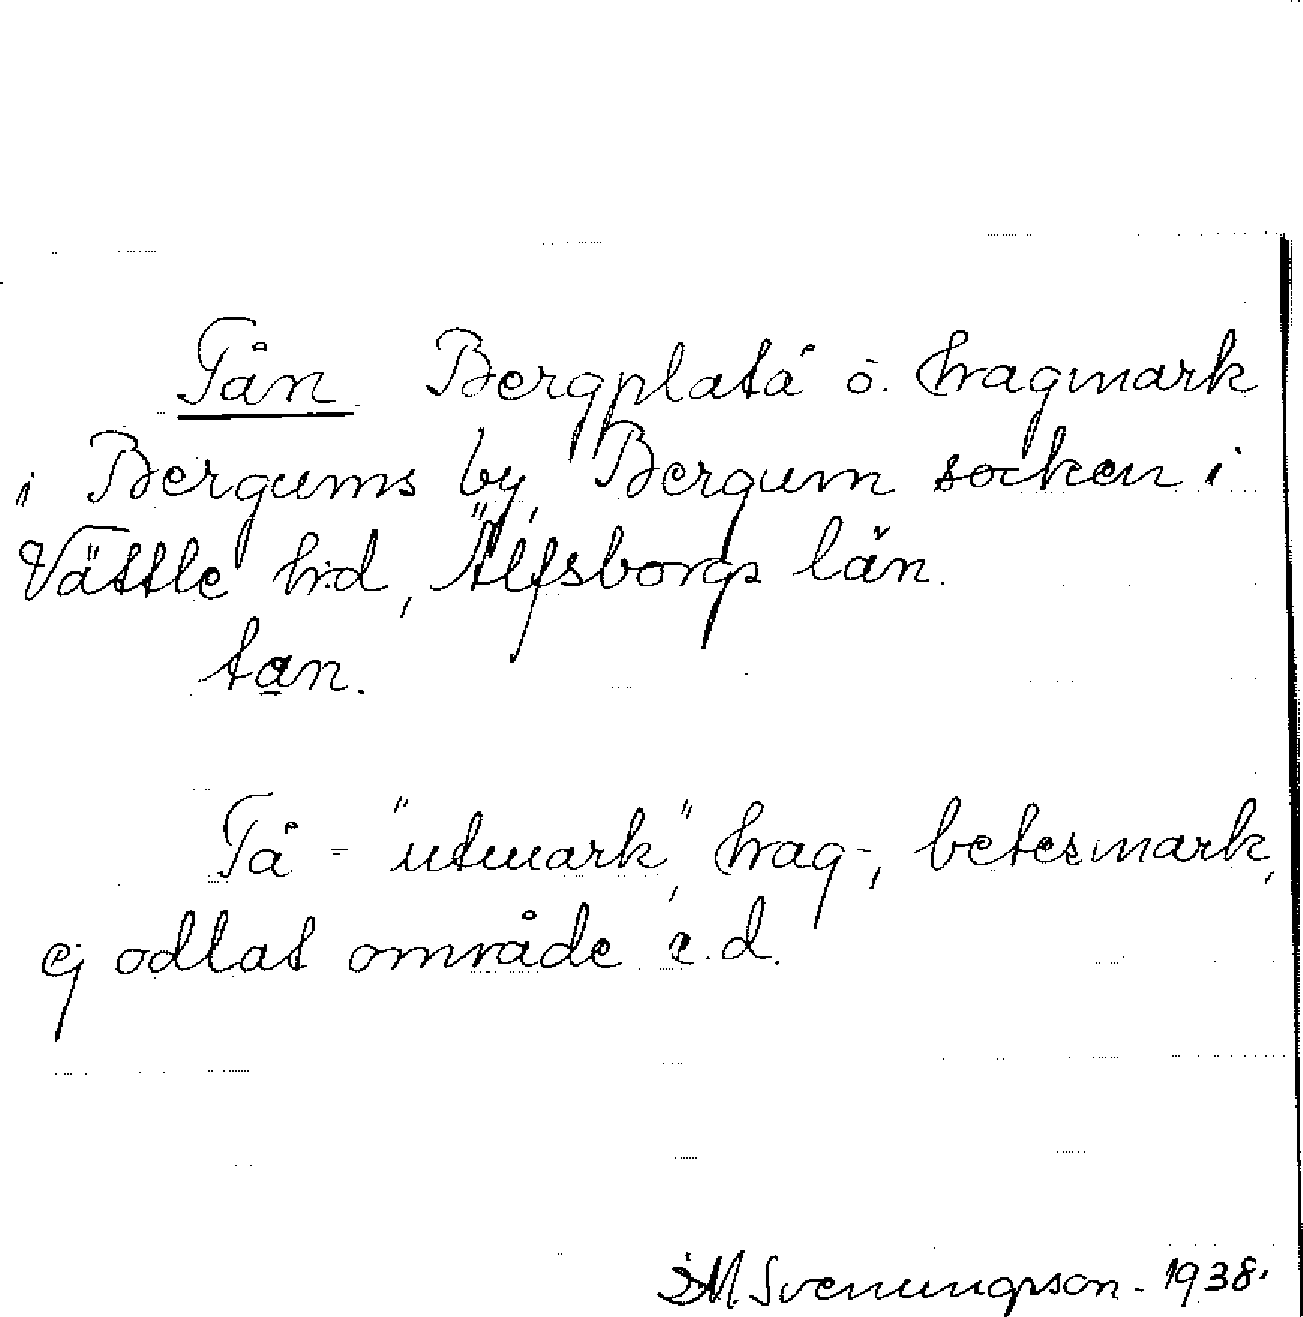 Tån Bergplatå o. hagmark
i Bergums by, Bergum socken i
Vättle hd, Älfsborgs län.
tan.
Tå - "utmark", hag-, betesmark,
ej odlat område e.d.
Svenungsson - 1938.